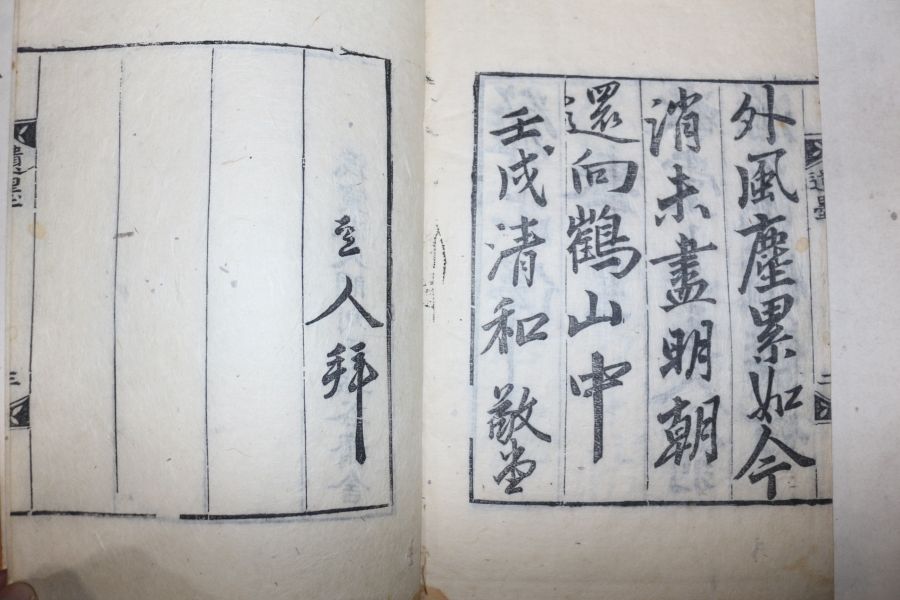 外風塵累如今
消未盡明朝
還向鶴山中
壬戌清和 敬堂
主人拜
遺墨
二
遺墨
三